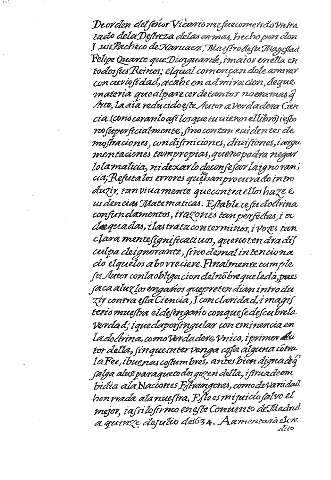 De orden del señor Vicario me fue cometido un tra
tado de la Destreza de las armas, hecho por don
Luis Pacheco de Narvaez, Maestro de su Magestad
Felipe Quarto que Dios guarde, i maior en ella en
todos sus Reinos; el qual començandole a mirar
con curiosidad, acabè en admiracion, de que
materia que al parecer de tantos no era mas q̃
Arte, la aia reducido este Autor a verdadera Cien
cia (como caràn lo asi los que tuvieren el libro) i esto
no superficialmente, sino con tan evidentes de
mostraciones, con difiniciones, divisiones, i argu
mentaciones tan propias, que no podrà negar
lo la malicia, ni dexarlo de confesar la ignoran
cia; Refuta los errores que han procurado intro
duzir, tan vivamente que contra ellos haze e
videncias Matematicas. Establece su doctrina
con fundamentos, i razones tan perfectas, i a
decuadas, i las trata con terminos, i vozes tan
claramente significativas, que no tendra dis
culpa el ignorante, sino es mal intenciona
do el que los aborreciere. Finalmente cumple
su Autor con la obligacion del nõbre que le dà, pues
saca a luz los engaños que pretendian introdu
zir contra esta Ciencia, i con claridad, i magis
terio muestra el desengaño con que se descubre la
verdad; i que claro por singular con eminencia en
la doctrina, como Verdadero, Unico, i primer Au
tor della, sin que intervenga cosa alguna cõtra
la Fee, i buenas costumbres, antes bien digna de q̃
salga a luz para que todos gozen della, i sirva de em
bidia a las Naciones Estrangeras, como de vanidad
honrada a la nuestra. Esto es mi juicio salvo el
mejor, i asi lo firmo en este Convento de Madrid
a quinze, de julio de 1634.